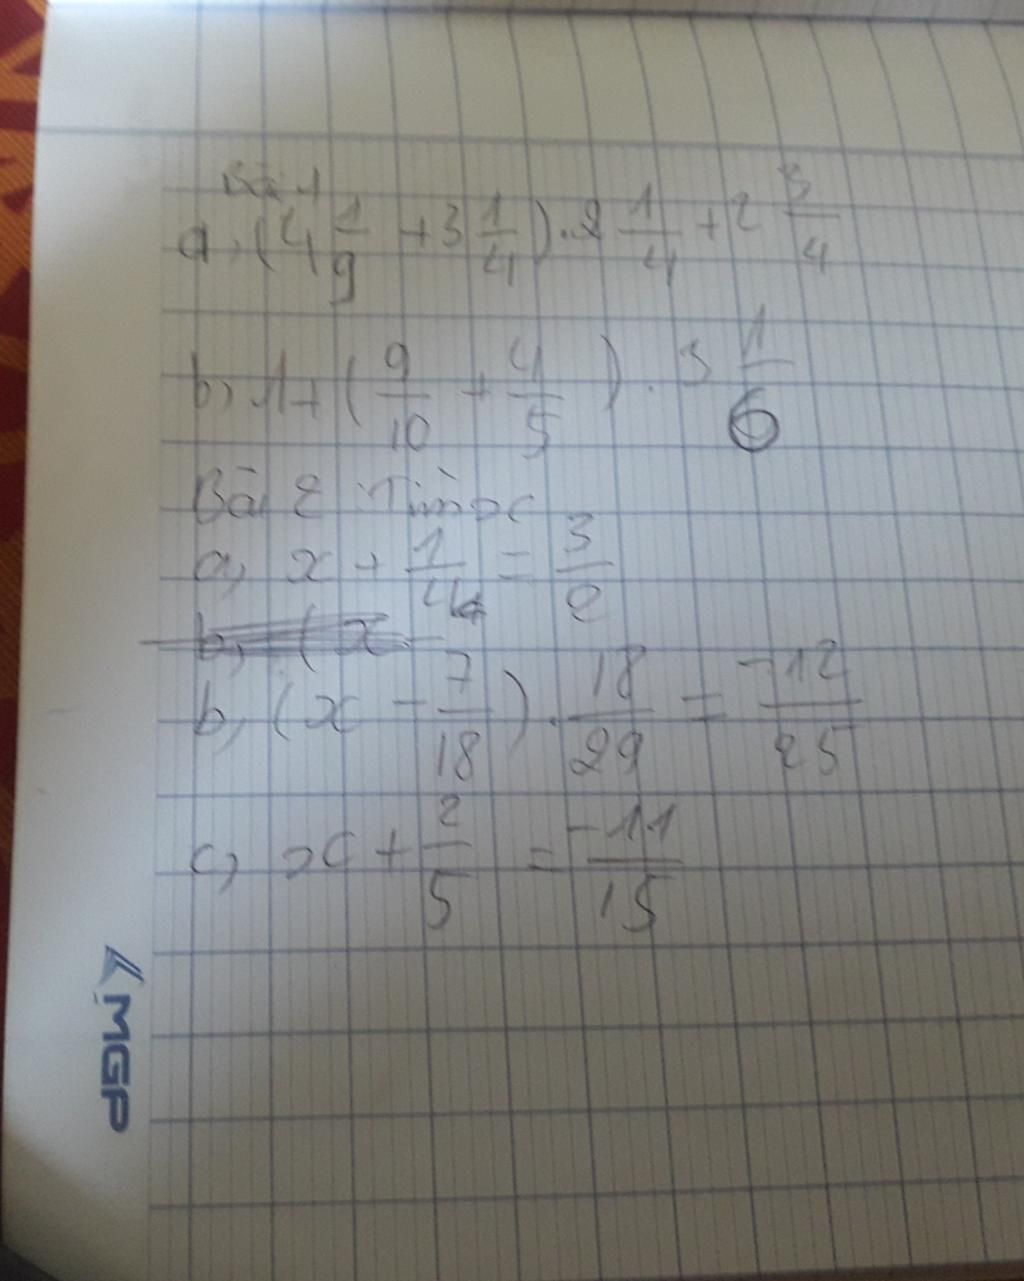 Bài 1
a, (4 1/9 + 3 1/4) . 2 1/4 + 2 3/4
b, 1 + (9/10 + 4/5) . 3 1/6
Bài 2 : Tìm x
a, x + 1/4 = 3/2
b, (x -
b, (x - 7/18) . 18/29 = -12/25
c, x + 2/5 = -11/15
MGP